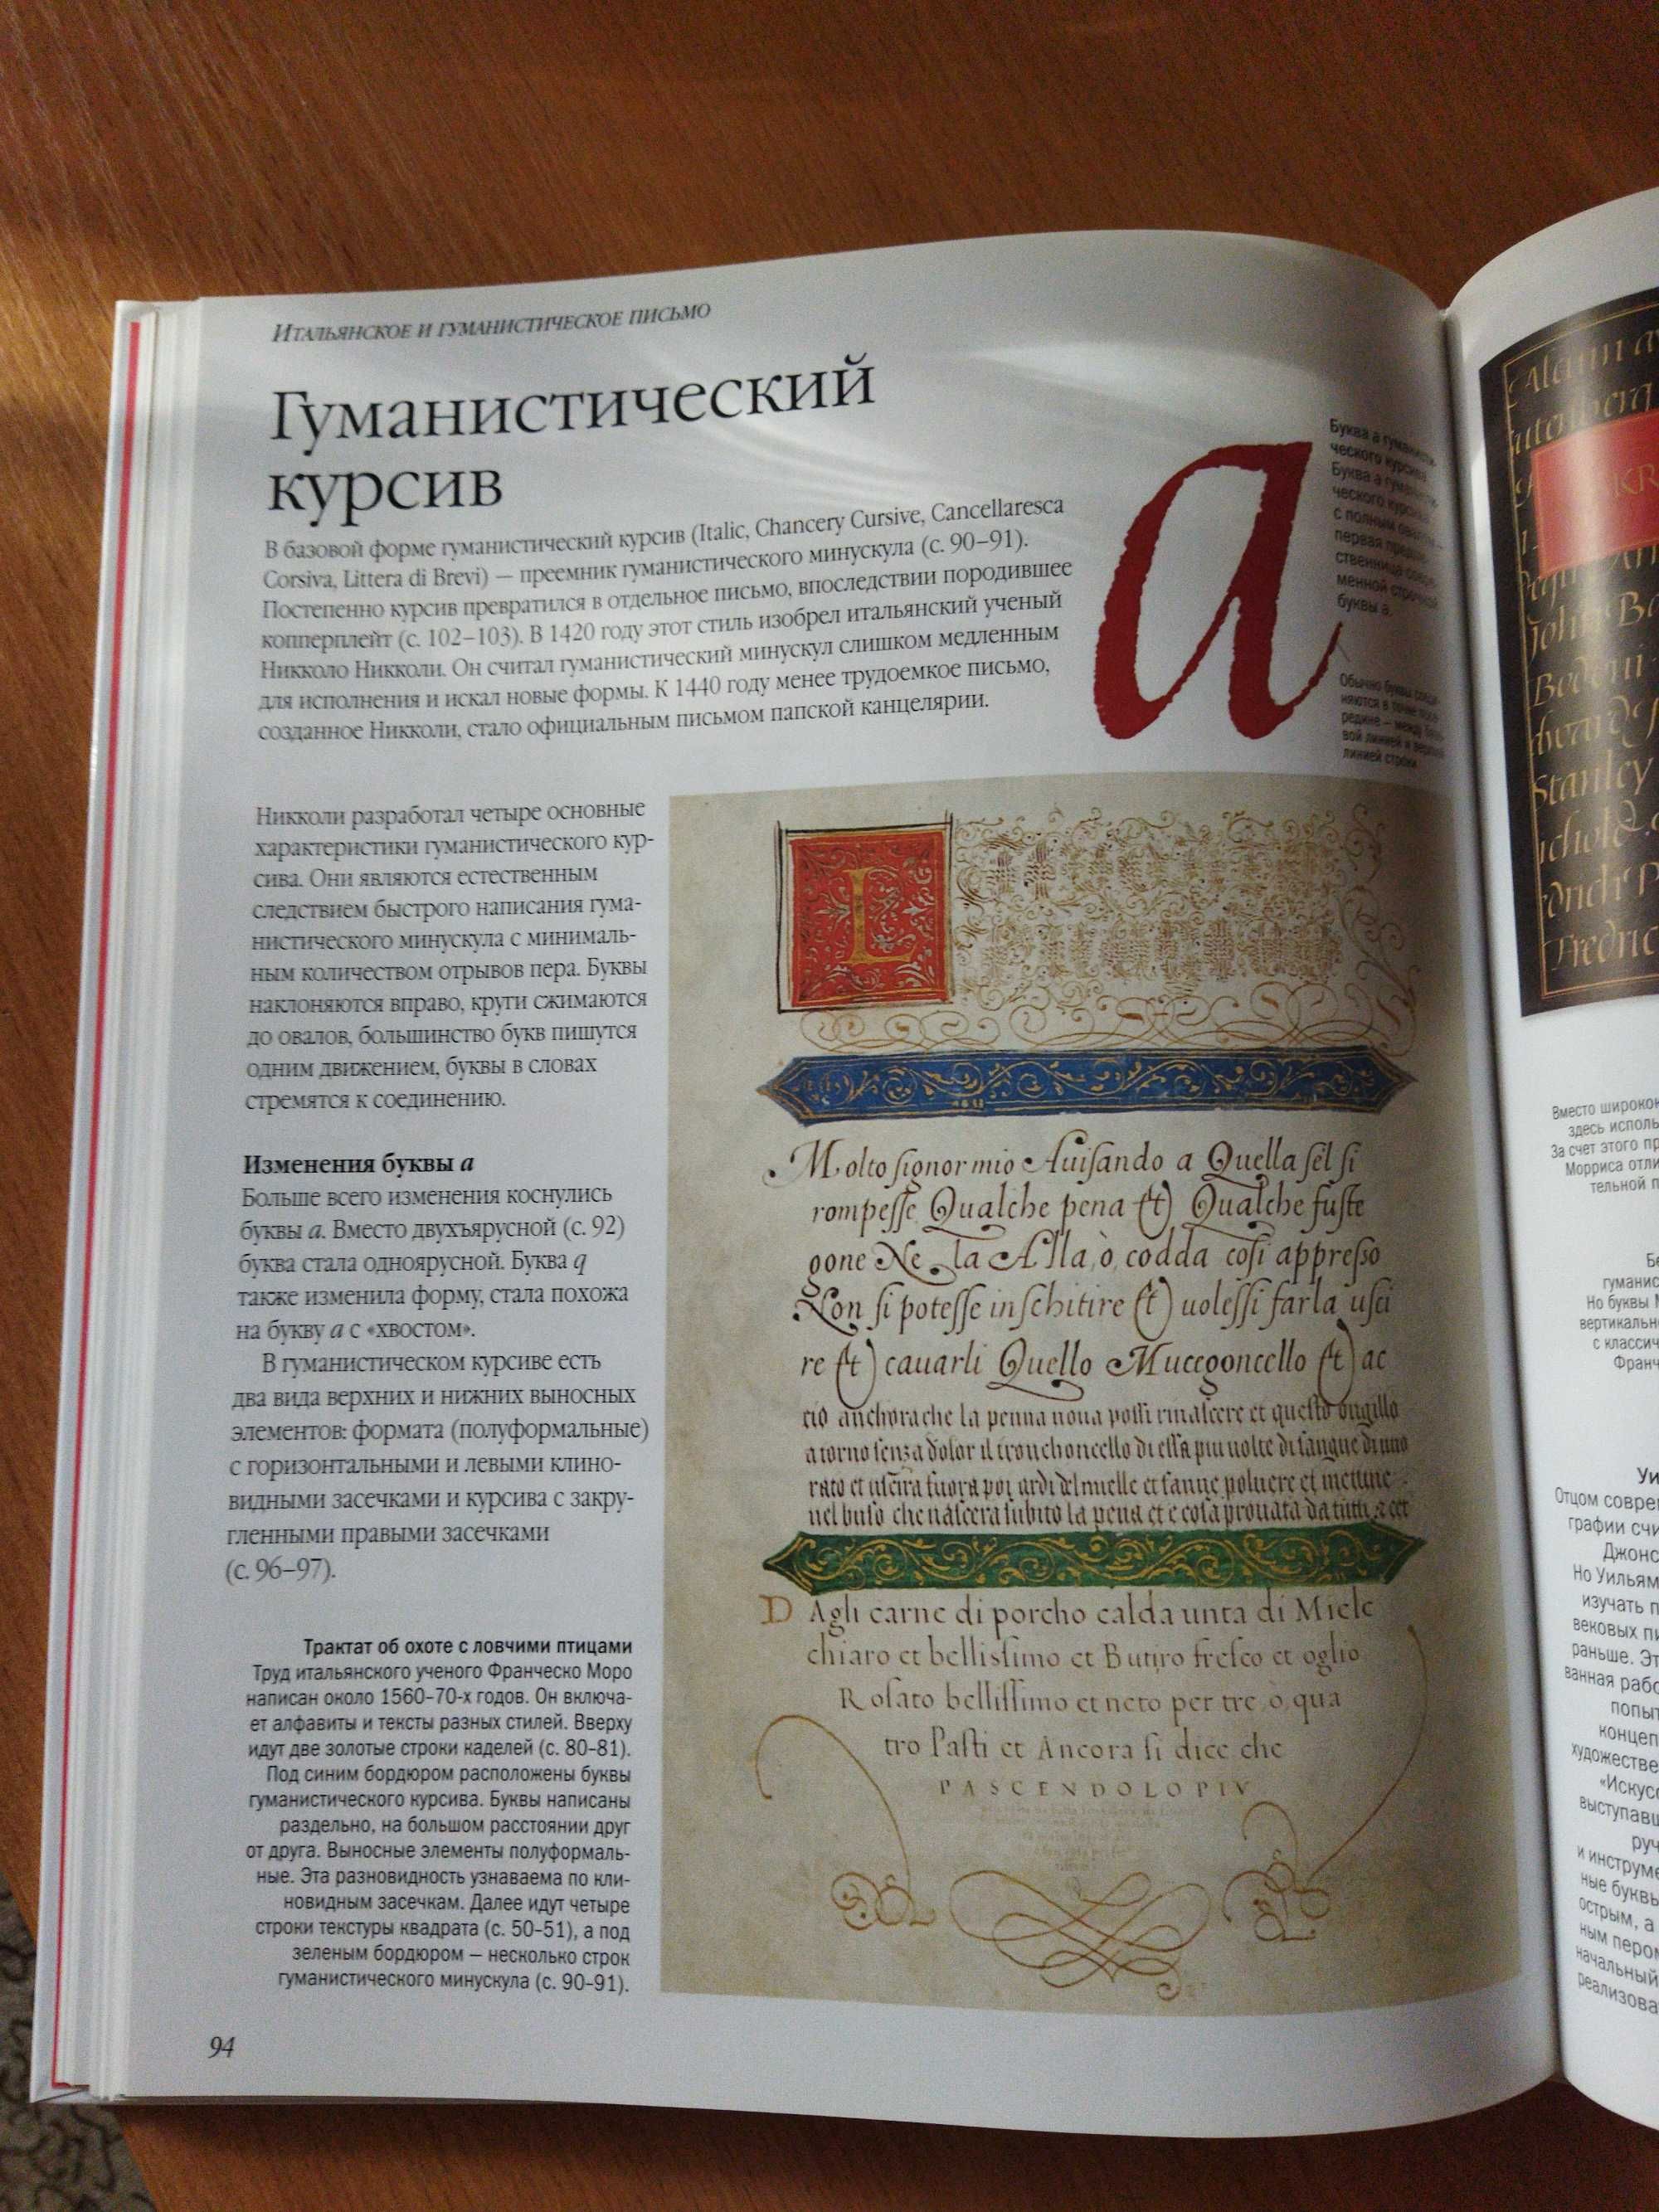 Итальянское и гуманистическое письмо
Гуманистический
курсив
В базовой форме гуманистический курсив (Italic, Chancery Cursive, Cancellaresca
Corsiva, Littera di Brevi) — преемник гуманистического минускула (с. 90–91).
Постепенно курсив превратился в отдельное письмо, впоследствии породившее
копперплейт (с. 102–103). В 1420 году этот стиль изобрел итальянский ученый
Никколо Никколи. Он считал гуманистический минускул слишком медленным
для исполнения и искал новые формы. К 1440 году менее трудоемкое письмо,
созданное Никколи, стало официальным письмом папской канцелярии.
a
Буква а гуманисти-
ческого курсива
Буква а гуманисти-
ческого курсива
с полным
первая
менной строчной
буквы а.
Обычно буквы
няются в точке
редине — между
вой линией и
линией строки
Никколи разработал четыре основные
характеристики гуманистического кур-
сива. Они являются естественным
следствием быстрого написания гума-
нистического минускула с минималь-
ным количеством отрывов пера. Буквы
наклоняются вправо, круги сжимаются
до овалов, большинство букв пишутся
одним движением, буквы в словах
стремятся к соединению.
Изменения буквы а
Больше всего изменения коснулись
буквы а. Вместо двухъярусной (с. 92)
буква стала одноярусной. Буква q
также изменила форму, стала похожа
на букву а с «хвостом».
В гуманистическом курсиве есть
два вида верхних и нижних выносных
элементов: формата (полуформальные)
с горизонтальными и левыми клино-
видными засечками и курсива с закру-
гленными правыми засечками
(с. 96–97).
Трактат об охоте с ловчими птицами
Труд итальянского ученого Франческо Моро
написан около 1560–70-х годов. Он включа-
ет алфавиты и тексты разных стилей. Вверху
идут две золотые строки каделей (с. 80–81).
Под синим бордюром расположены буквы
гуманистического курсива. Буквы написаны
раздельно, на большом расстоянии друг
от друга. Выносные элементы полуформаль-
ные. Эта разновидность узнаваема по кли-
новидным засечкам. Далее идут четыре
строки текстуры квадрата (с. 50–51), а под
зеленым бордюром — несколько строк
гуманистического минускула (с. 90–91).
94
L
Molto signor mio Auisando a Quella sel si
rompesse Qualche pena et Qualche fuste
gone Ne la Alla, ò, codda cosi appresso
Non si potesse inschitire et uolessi farla usci
re et cauarli Quello Muccogoncello et ac
cio anchora che la penna noua possi rinascere et questo
atorno senza dolor il di essa piu uolte di sangue
rato et uscira fuora poi del mielle et fanne poluere et mettine
nel buso che nascera subito la pena et e cosa prouata
D Agli carne di porcho calda unta di Miele
chiaro et bellissimo et Butiro fresco et oglio
Rosato bellissimo et neto per tre, ò, qua
tro Pasti et Ancora si dice che
PASCENDOLO PIV
Alcuin
KR
John
Stanley
Fredric
Вместо
здесь
За счет этого
Морриса
Но буквы
с
Отцом
графии
Но Уильям
изучать
раньше.